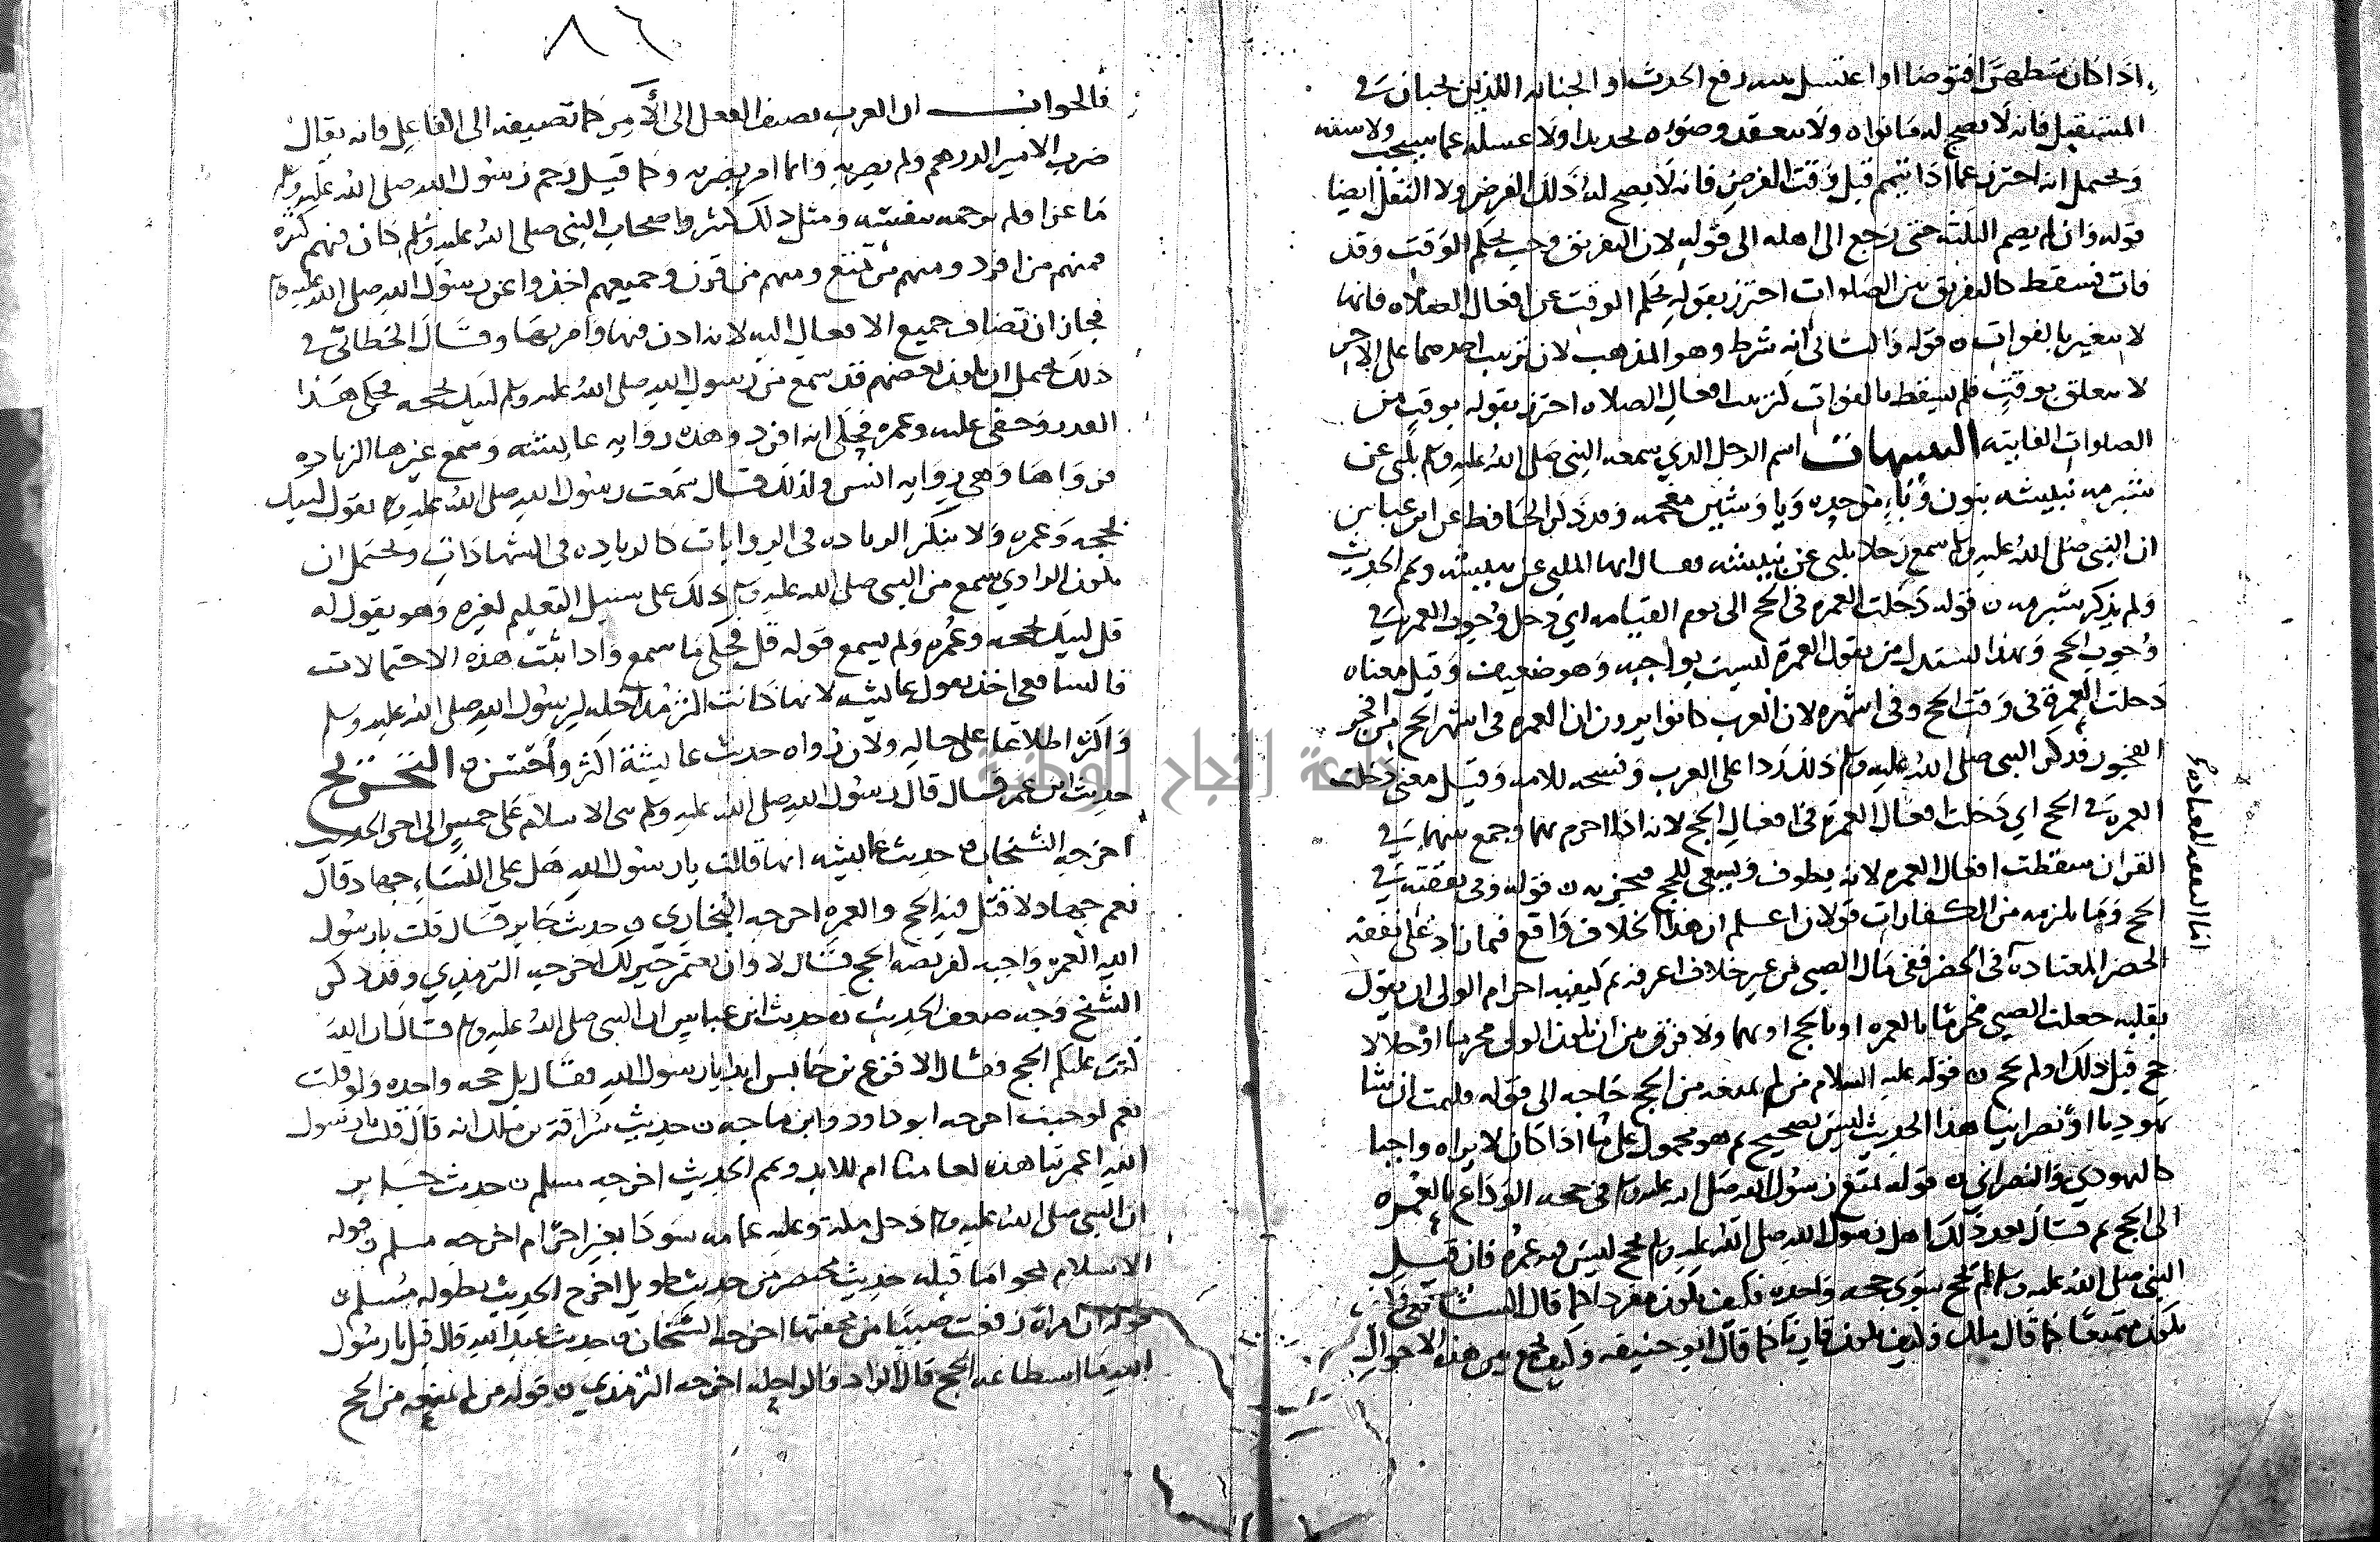 اذا كان متطهرا فتوضا او اغتسل بنيه رفع الحدث او الجنابه اللذين يجبان في
المستقبل فانه لا يصح له ما نواه ولا ينعقد وضوءه تجديدا ولا غسله عما يستحب ولا سنه
ويحتمل انه احترز عما اذا تيمم قبل وقت الفرض فانه لا يصح له ذلك الفرض ولا النفل ايضا
قوله وان لم يصم الثلثه حتى رجع الى اهله الى قوله لان التفريق وجب بحكم الوقت وقد
فات فسقط كالتفريق بين الصلوات احترز بقوله بحكم الوقت عن افعال الصلاه فانها
لا تتغير بالفوات ن قوله والثاني انه شرط وهو المذهب لان ترتيب احدهما على الاخر
لا يتعلق بوقت فلم يسقط بالفوات كترتيب افعال الصلاه احترز بقوله بوقت من
الصلوات الفايته التنبيهات اسم الرجل الذي سمعه النبي صلى الله عليه وسلم يلبي عن
شبرمه نبيشه بنون وباء موحده ويا وشين معجمه وقد ذكر الحافظ عن ابن عباس
ان النبي صلى الله عليه وسلم سمع رجلا يلبي عن نبيشه فقال ايها الملبي عن نبيشه وتمم الحديث
ولم يذكر شبرمه ن قوله دخلت العمره في الحج الى يوم القيامه اي دخل وجوب العمره في
وجوب الحج وبهذا استدل من يقول العمرة ليست بواجبه وهو ضعيف وقيل معناه
دخلت العمرة في وقت الحج وفي اشهره لان العرب كانوا يرون ان العمره في اشهر الحج من افجر
الفجور فذكر النبي صلى الله عليه وسلم ذلك ردا على العرب وفسحه للامه وقيل معنى دخلت
العمرة في الحج اي دخلت افعال العمرة في افعال الحج لانه اذا احرم بهما وجمع بينهما في
القران سقطت افعال العمره لانه يطوف ويسعى للحج فيجزيه ن قوله وفي نفقته في
الحج وما يلزمه من الكفارات قولان اعلم ان هذا الخلاف واقع فيما زاد على نفقه
الحضر المعتادة في الحضر ففي مال الصبي من غير خلاف اعرفه ثم كيفيه احرام الولي ان يقول
بقلبه جعلت الصبي محرما بالعمره او بالحج او بهما ولا فرق بين ان يكون الولي محرما او حلالا
حج قبل ذلك او لم يحج ن قوله عليه السلام من لم يمنعه من الحج حاجه الى قوله فليمت ان شا
يهوديا او نصرانيا هذا الحديث ليس بصحيح ثم هو محمول على ما اذا كان لا يراه واجبا
كاليهودي والنصراني ن قوله تمتع رسول الله صلى الله عليه وسلم في حجه الوداع بالعمره
الى الحج ثم قال بعد ذلك اهل رسول الله صلى الله عليه وسلم بحج ليس معه عمرة فان قيل
النبي صلى الله عليه وسلم لم يحج سوى حجه واحده فكيف يكون مفردا كما قال الشافعي وكيف
يكون متمتعا كما قال ملك وكيف يكون قارنا كما قال ابو حنيفه وكيف يجمع بين هذه الاحوال
اما النفقه المعتاده
٨٦
فالجواب ان العرب تضيف الفعل الى الآمر كما تضيفه الى الفاعل فانه يقال
ضرب الامير الدرهم ولم يضربه وانما امر بضربه وكما قيل رجم رسول الله صلى الله عليه وسلم
ماعزا ولم يرجمه بنفسه ومثل ذلك كثير واصحاب النبي صلى الله عليه وسلم كان فيهم كثره
فمنهم من افرد ومنهم من تمتع ومنهم من قرن وجميعهم اخذوا عن رسول الله صلى الله عليه وسلم
فجاز ان تضاف جميع الافعال اليه لانه اذن فيها وامر بها وقال الخطابي في
ذلك يحتمل ان يكون بعضهم قد سمع من رسول الله صلى الله عليه وسلم لبيك بحجه فحكى هذا
القدر وخفي عليه وعمره فحكى انه افرد وهذه روايه عايشه وسمع غيرها الزياده
فرواها وهي روايه انس ولذلك قال سمعت رسول الله صلى الله عليه وسلم يقول لبيك
بحجه وعمره ولا ينكر الزياده في الروايات كالزياده في الشهادات ويحتمل ان
يكون الراوي سمع من النبي صلى الله عليه وسلم ذلك على سبيل التعليم لغيره وهو يقول له
قل لبيك بحجه وعمره ولم يسمع قوله قل فحكى ما سمع واذا ثبت هذه الاحتمالات
فالشافعي اخذ بقول عايشه لانها كانت الزم لرسول الله صلى الله عليه وسلم
واكثر اطلاعا على حاله ولان رواه حديث عايشة اكثر واحسن ن التخريج
حديث ابن عمر قال قال رسول الله صلى الله عليه وسلم بني الاسلام على خمس الى اخر الحديث
اخرجه الشيخان ن حديث عايشه انها قالت يا رسول الله هل على النساء جهاد قال
نعم جهاد لا قتل فيه الحج والعمره اخرجه البخاري ن حديث جابر قال قلت يا رسول
الله العمره واجبه كفريضه الحج قال لا وان تعتمر خير لك اخرجه الترمذي وقد ذكر
الشيخ وجه ضعف الحديث ن حديث ابن عباس ان النبي صلى الله عليه وسلم قال ان الله
كتب عليكم الحج فقال الاقرع بن حابس ابدا يا رسول الله فقال بل حجه واحده ولو قلت
نعم لوجبت اخرجه ابو داود وابن ماجه ن حديث سراقة بن ملك انه قال قلت يا رسول
الله اعمرتنا هذه لعامنا ام للابد وتمم الحديث اخرجه مسلم ن حديث جابر
ان النبي صلى الله عليه وسلم دخل مكة وعليه عمامه سودا بغير احرام اخرجه مسلم ن قوله
الاسلام يمحوا ما قبله حديث مختصر من حديث طويل اخرج الحديث بطوله مسلم ن
قوله ان امراة رفعت صبيا من محفتها اخرجه الشيخان ن حديث عبد الله قال قيل يا رسول
الله ما استطاعه الحج قال الزاد والراحله اخرجه الترمذي ن قوله من لم يمنعه من الحج